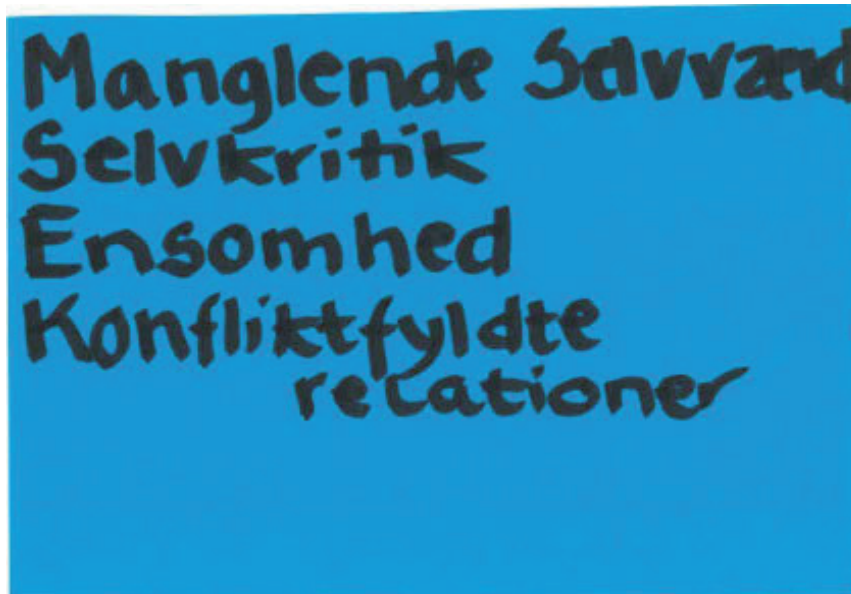 Manglende Selvværd
Selvkritik
Ensomhed
Konfliktfyldte
relationer